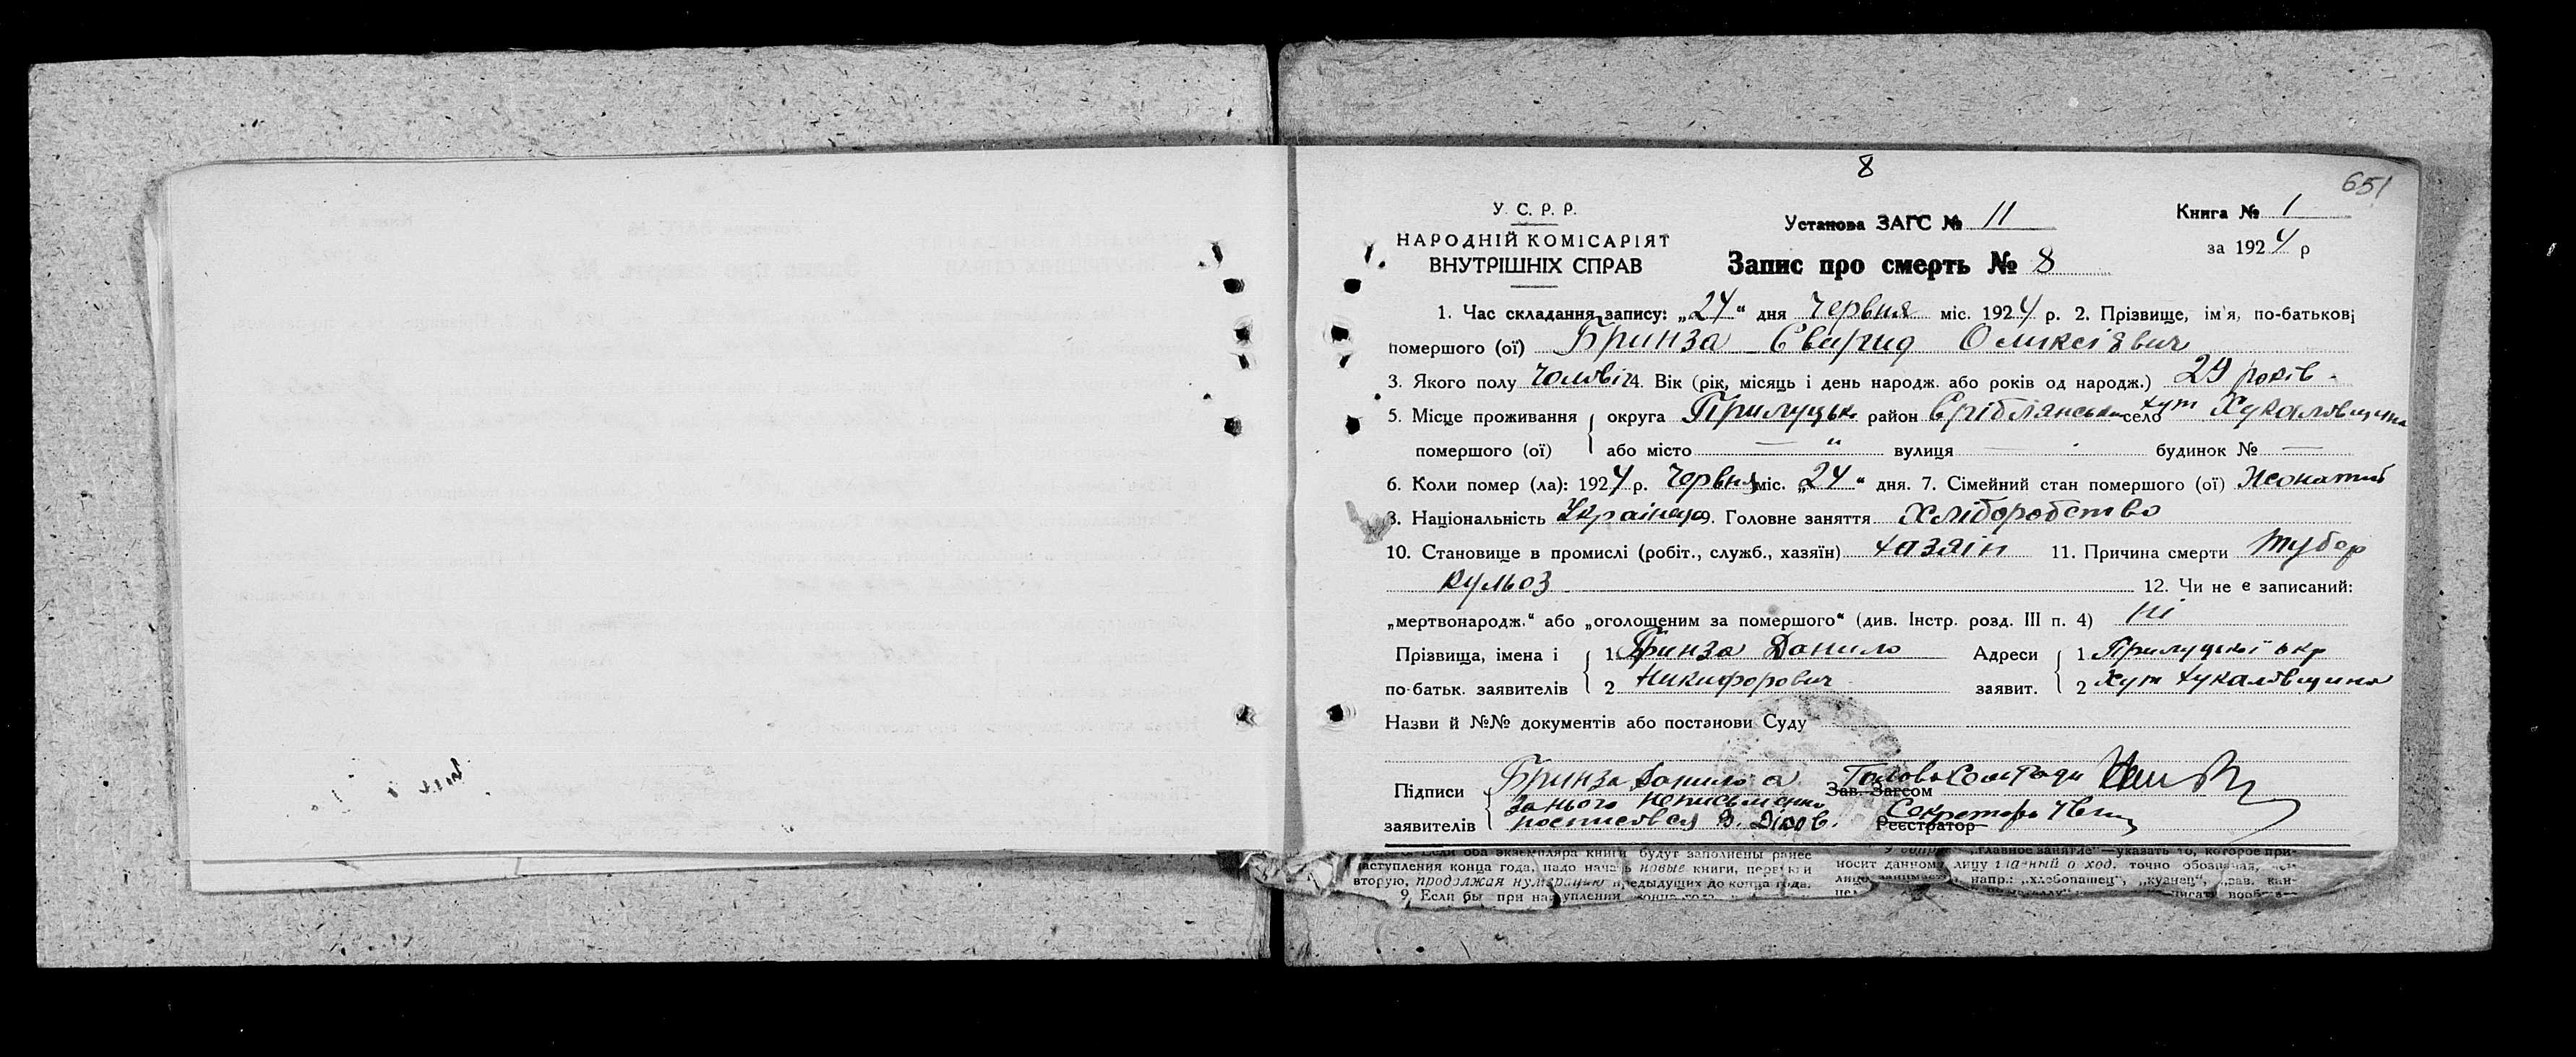 8
651
У. С. Р. Р.
НАРОДНІЙ КОМІСАРІЯТ
ВНУТРІШНІХ СПРАВ
Установа ЗАГС № 11
Запис про смерть № 8
Книга № 1
за 1924 р
1. Час складання запису: „24“ дня Червня міс. 1924 р. 2. Прізвище, ім'я, по-батькові
помершого (ої) Бринза Євдгид Оликсіявич
3. Якого полу чоловіч 4. Вік (рік, місяць і день народж. або років од народж.) 29 років
5. Місце проживання округа Прилуцьк район Срібнянськ село хут Хукаловщина
помершого (ої) або місто — " вулиця — будинок № —
6. Коли помер (ла): 1924 р. Червня міс. „24“ дня. 7. Сімейний стан помершого (ої) Жонатий
8. Національність Українец 9. Головне заняття Хліборобство
10. Становище в промислі (робіт., служб., хазяїн) хазяін 11. Причина смерти Тубер
кульоз 12. Чи не є записаний:
„мертвонародж.“ або „оголошеним за помершого“ (див. Інстр. розд. III п. 4) ні
Прізвища, імена і по-батьк. заявителів
1 Бринза Данило
2 Никифорович
Адреси заявит.
1 Прилуцької окр
2 Хут Хукаловщина
Назви й №№ документів або постанови Суду
Підписи заявителів
Бринза Данило а
за нього неписьменно
росписовся В. Дідов.
Голова Сельради
Зав. Загсом
Секретарь
Реєстратор
Если оба экземпляра книги будут заполнены ранее
наступления конца года, надо начать новые книги, первую и
вторую, продолжая нумерацию предыдущих до конца года.
9. Если бы при наступлении конца года
„главное занятие“—указать то, которое при-
носит данному лицу главный доход, точно обозначая,
напр.: „хлебопашец“, „кузнец“, „зав. кан-